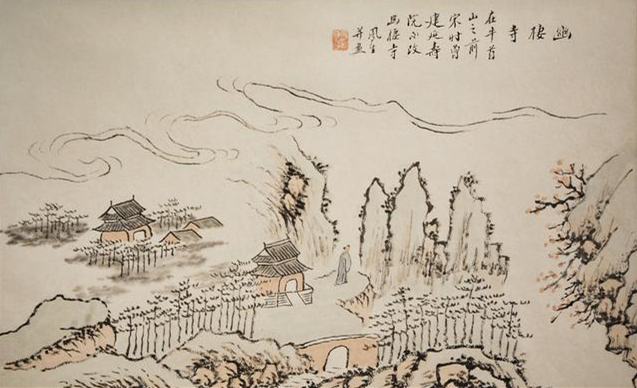 幽棲寺
在牛首
山之前
宋時曾
建延壽
院而改
幽棲寺
風生
并畫